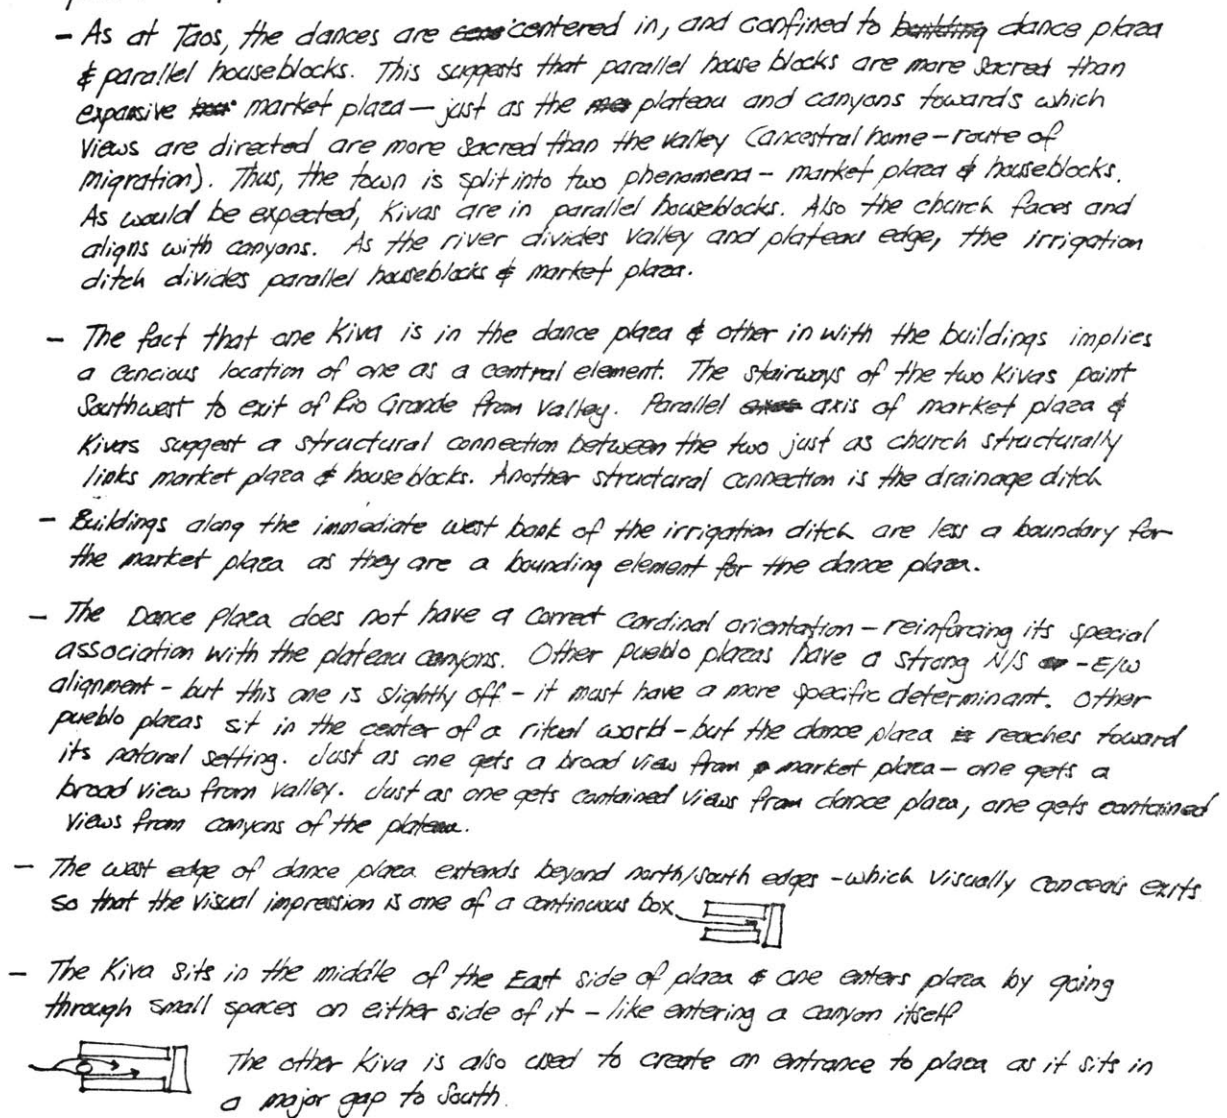 - As at Taos, the dances are centered in, and confined to building dance plaza
& parallel houseblocks. This suggests that parallel house blocks are more sacred than
expansive market plaza — just as the plateau and canyons towards which
views are directed are more sacred than the valley (ancestral home - route of
migration). Thus, the town is split into two phenomena - market plaza & houseblocks.
As would be expected, Kivas are in parallel houseblocks. Also the church faces and
aligns with canyons. As the river divides valley and plateau edge, the irrigation
ditch divides parallel houseblocks & market plaza.
- The fact that one Kiva is in the dance plaza & other in with the buildings implies
a concious location of one as a central element. The stairways of the two Kivas point
Southwest to exit of Rio Grande from Valley. Parallel axis of market plaza &
Kivas suggest a structural connection between the two just as church structurally
links market plaza & houseblocks. Another structural connection is the drainage ditch
- Buildings along the immediate west bank of the irrigation ditch are less a boundary for
the market plaza as they are a bounding element for the dance plaza.
- The Dance Plaza does not have a correct cardinal orientation - reinforcing its special
association with the plateau canyons. Other pueblo plazas have a strong N/S - E/W
alignment - but this one is slightly off - it must have a more specific determinant. Other
pueblo plazas sit in the center of a ritual world - but the dance plaza reaches toward
its natural setting. Just as one gets a broad view from market plaza - one gets a
broad view from valley. Just as one gets contained views from dance plaza, one gets contained
views from canyons of the plateau.
- The west edge of dance plaza extends beyond north/south edges - which visually conceals exits
so that the visual impression is one of a continuous box
- The Kiva sits in the middle of the East side of plaza & one enters plaza by going
through small spaces on either side of it - like entering a canyon itself
The other Kiva is also used to create an entrance to plaza as it sits in
a major gap to South.